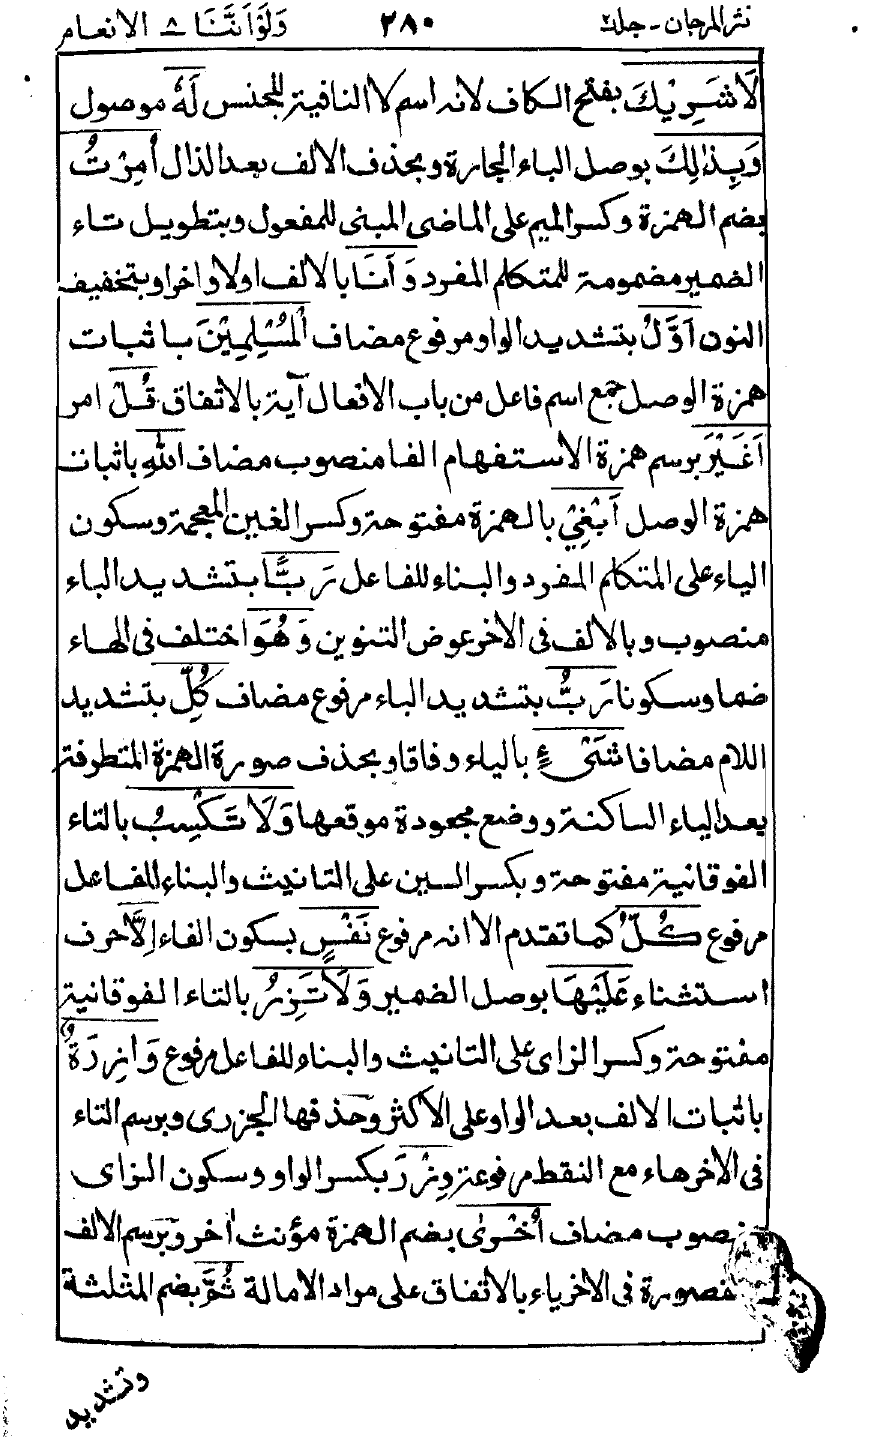 نثر المرجان - جلد ٢٨٠ وَلَوْ اَنَّنَا ٨ الانعام
لَا شَرِيْكَ بفتح الكاف لانه اسم لا النافية للجنس لَهٗ موصول
وَبِذٰلِكَ بوصل الباء الجارة وبحذف الالف بعد الذال اُمِرْتُ
بضم الهمزة وكسر الميم على الماضى المبنى للمفعول وبتطويل تاء
الضمير مضمومة للمتكلم المفرد وَاَنَا بالالف اولا واخرا وبتخفيف
النون اَوَّلُ بتشديد الواو مرفوع مضاف الْمُسْلِمِيْنَ باثبات
همزة الوصل جمع اسم فاعل من باب الافعال آية بالاتفاق قُلْ امر
اَغَيْرَ برسم همزة الاستفهام الفا منصوب مضاف اللهِ باثبات
همزة الوصل اَبْغِيْ بالهمزة مفتوحة وكسر الغين المعجمة وسكون
الياء على المتكلم المفرد والبناء للفاعل رَبًّا بتشديد الباء
منصوب وبالالف فى الاخر عوض التنوين وَهُوَ اختلف فى الهاء
ضما وسكونا رَبُّ بتشديد الباء مرفوع مضاف كُلِّ بتشديد
اللام مضافا شَىْءٍ بالياء وفاقا وبحذف صورة الهمزة المتطرفة
بعد الياء الساكنة ووضع مجعودة موقعها وَلَا تَكْسِبُ بالتاء
الفوقانية مفتوحة وبكسر السين على التانيث والبناء للفاعل
مرفوع كُلُّ كما تقدم الا انه مرفوع نَفْسٍ بسكون الفاء اِلَّا حرف
استثناء عَلَيْهَا بوصل الضمير وَلَا تَزِرُ بالتاء الفوقانية
مفتوحة وكسر الزاى على التانيث والبناء للفاعل مرفوع وَازِرَةٌ
باثبات الالف بعد الواو على الاكثر وحذفها الجزرى وبرسم التاء
فى الاخر هاء مع النقط مرفوعة وِزْرَ بكسر الواو وسكون الزاى
نصوب مضاف اُخْرٰى بضم الهمزة مؤنث اٰخر وبرسم الالف
قصورة فى الاخر ياء بالاتفاق على مراد الامالة ثُمَّ بضم المثلثة
وتشديد